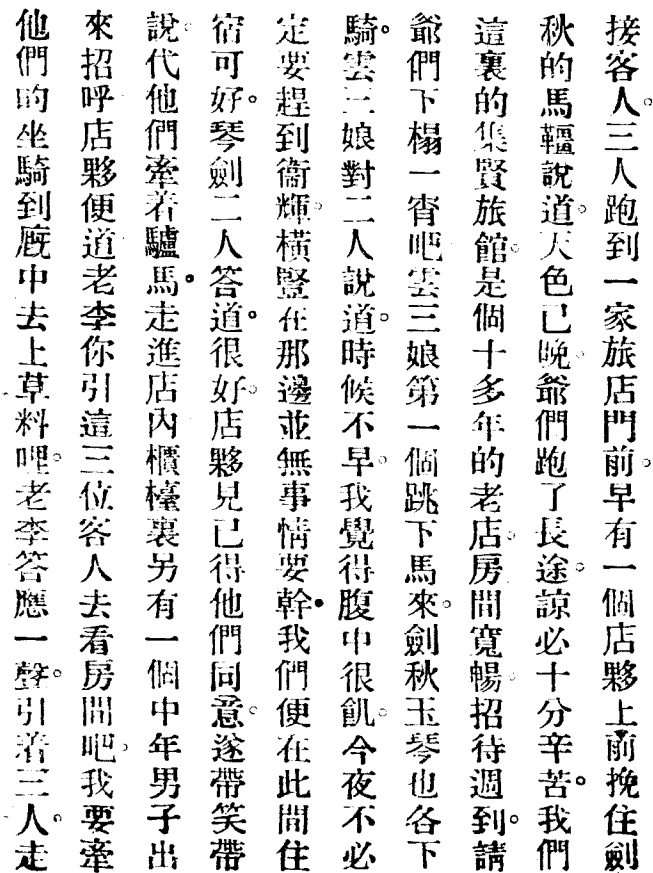 接客人。三人跑到一家旅店門前。早有一個店夥上前挽住劍
秋的馬韁說道。天色已晚。爺們跑了長途。諒必十分辛苦。我們
這裏的集賢旅館。是個十多年的老店。房間寬暢。招待週到。請
爺們下榻一宵吧。雲三娘第一個跳下馬來。劍秋玉琴也各下
騎。雲三娘對二人說道。時候不早。我覺得腹中很飢。今夜不必
定要趕到衞輝。橫豎在那邊並無事情要幹。我們便在此間住
宿可好。琴劍二人答道。很好。店夥見已得他們同意。遂帶笑帶
說。代他們牽着驢馬。走進店內。櫃檯裏另有一個中年男子出
來招呼。店夥便道。老李你引這三位客人去看房間吧。我要牽
他們的坐騎到廐中去上草料哩。老李答應一聲。引着三人。走